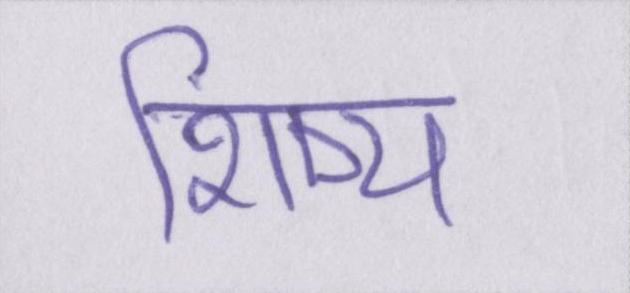 शिष्य